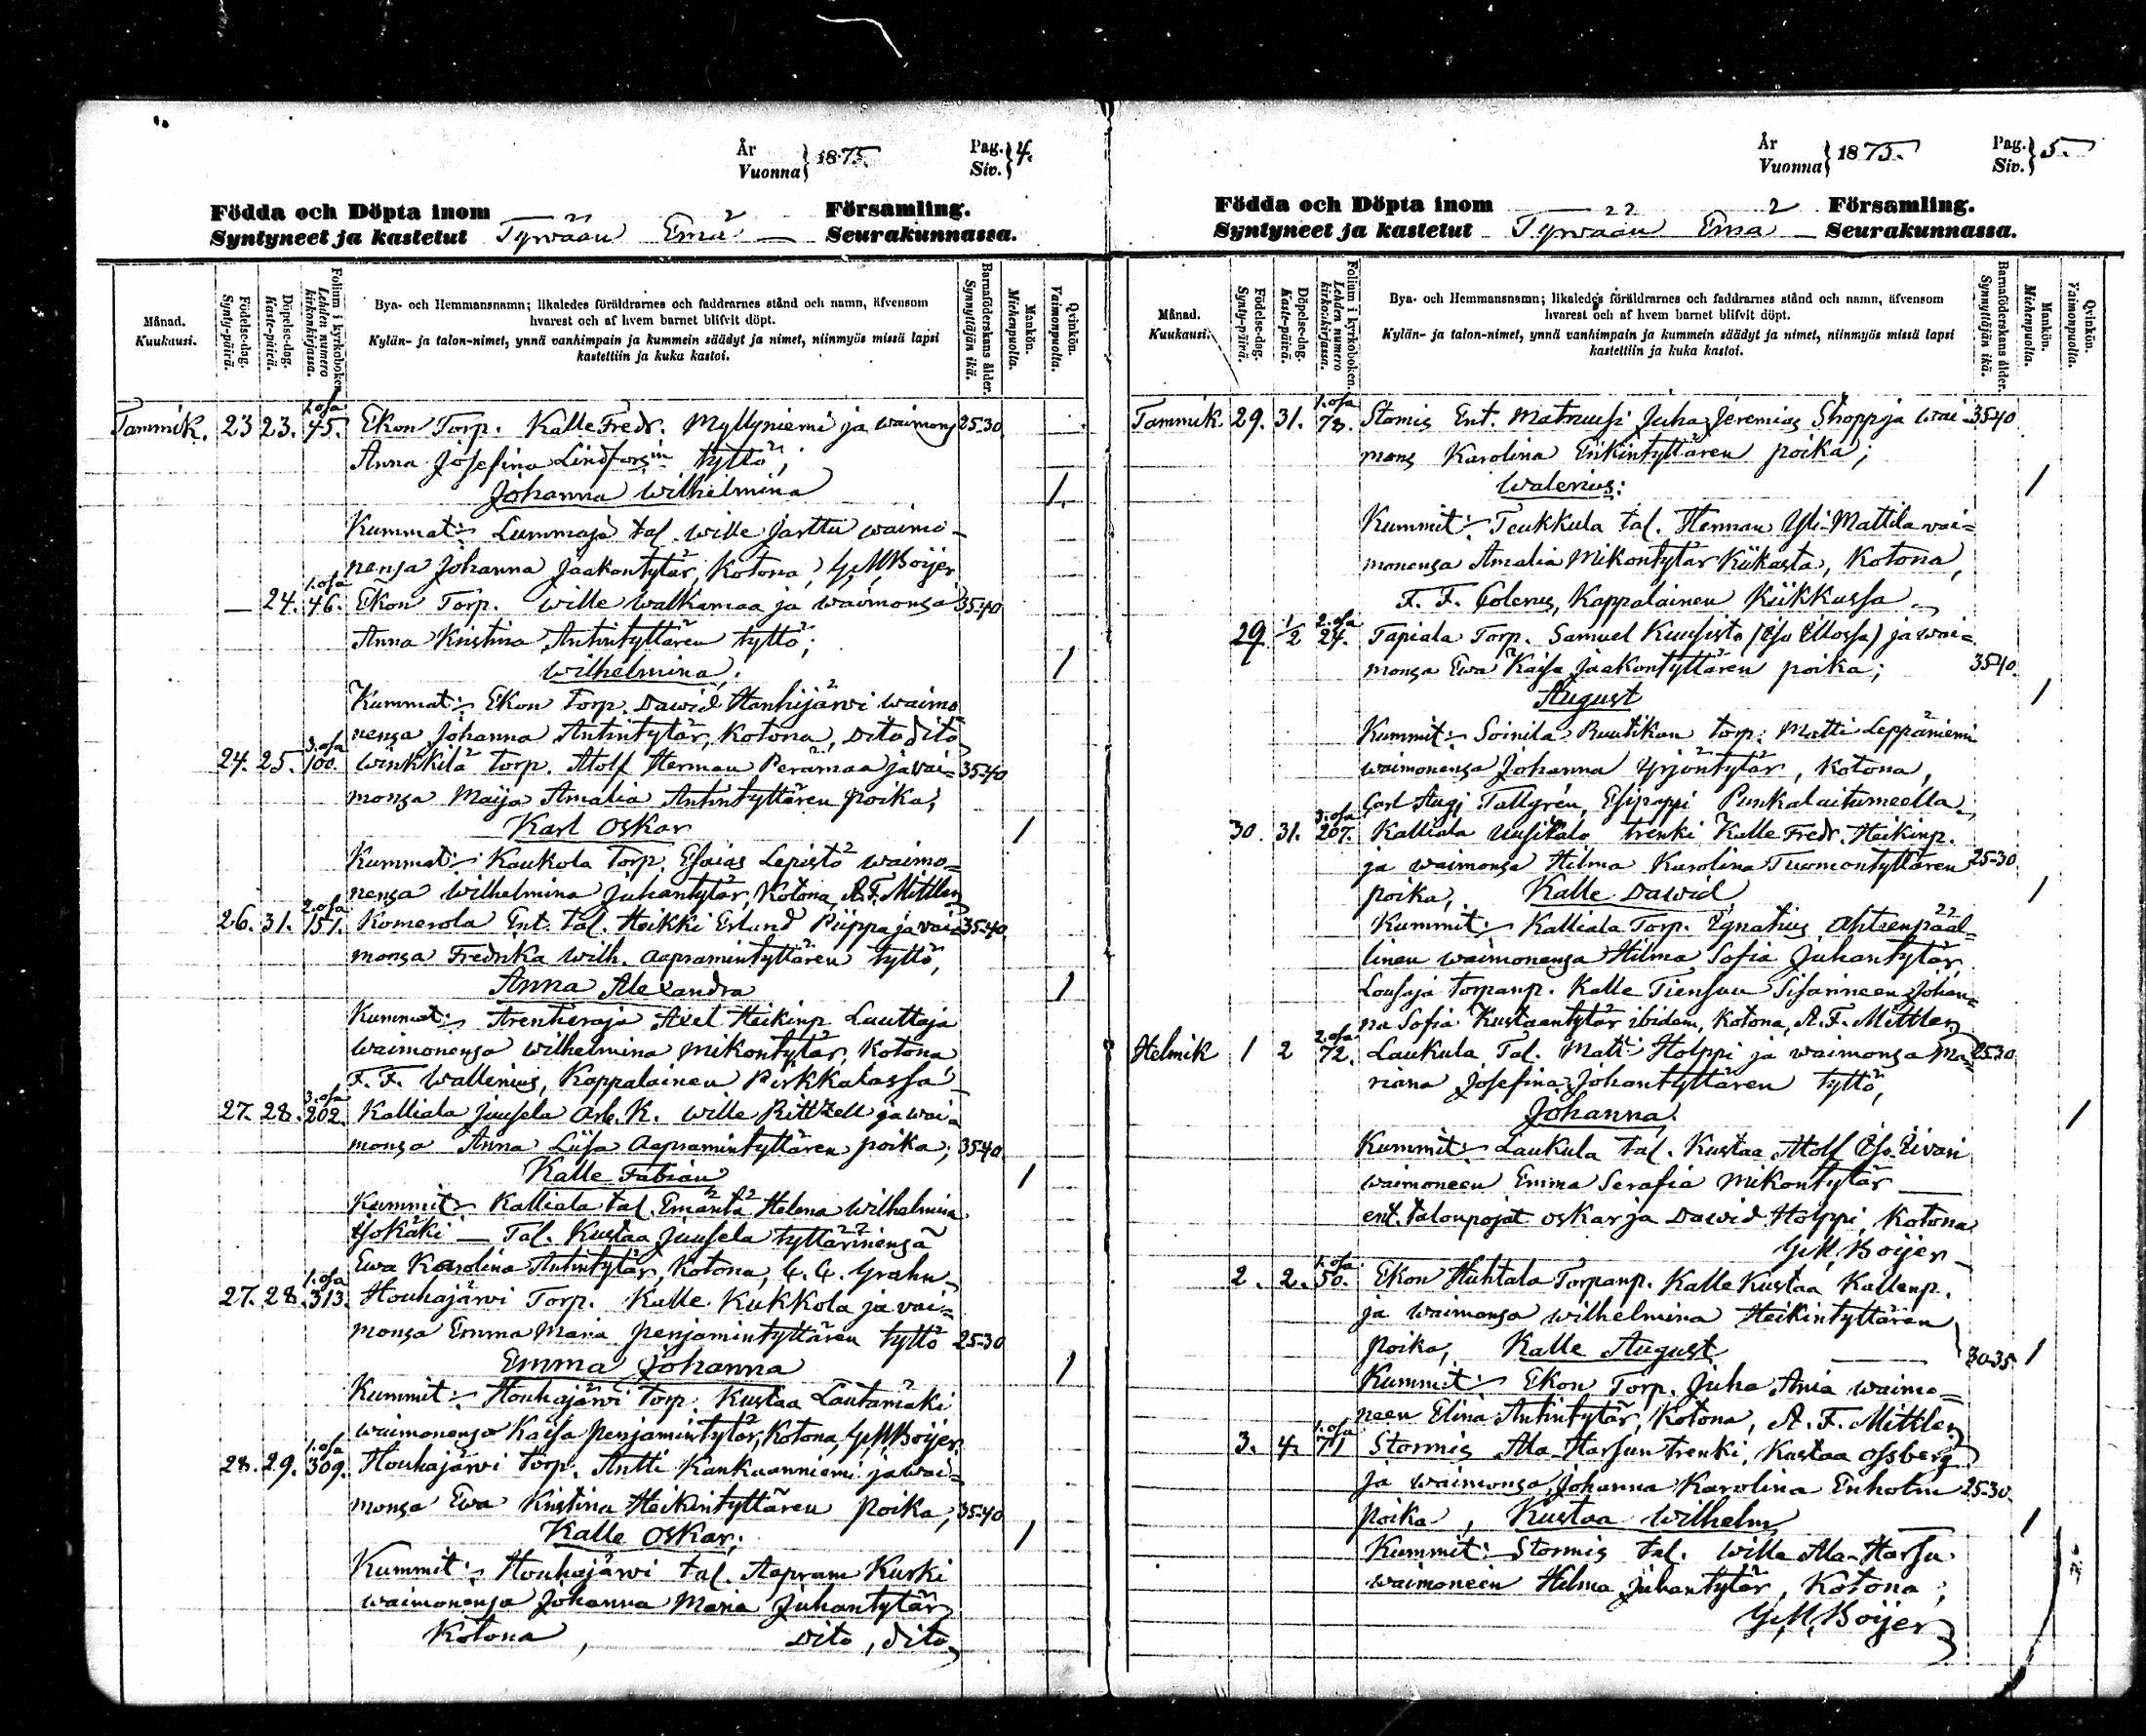 År
Vuonna } 1875.
Pag.
Siv. } 4.
Födda och Döpta inom Församling.
Syntyneet ja kastetut Tyrvään Emä — Seurakunnassa.
Månad.
Kuukausi.
Födelse-dag.
Synty-päivä.
Döpelse-dag.
Kaste-päivä.
Folium i kyrkoboken.
Lehden numero
kirkonkirjassa.
Bya- och Hemmansnamn; likaledes föräldrarnes och faddrarnes stånd och namn, äfvensom
hvarest och af hvem barnet blifvit döpt.
Kylän- ja talon-nimet, ynnä vanhimpain ja kummein säädyt ja nimet, niinmyös missä lapsi
kastettiin ja kuka kastoi.
Barnaföderskans ålder.
Synnyttäjän ikä.
Mankön.
Miehenpuolta.
Qvinkön.
Vaimonpuolta.
1. osa
Tammik. 23 23. 45. Ekon Torp. Kalle Fredr. Myllyniemi ja waimons 25-30
Anna Josefina Lindforsin tyttö;
Johanna Wilhelmina 1
Kummat: Lummaja tal. Wille Jarttu waimo-
nensa Johanna Jaakontytär, Kotona, G. M. Boijer
1. osa
— 24. 46. Ekon Torp. Wille Walkamaa ja waimonsa 35-40
Anna Kristina Antintyttären tyttö;
Wilhelmina; 1
Kummat: Ekon Torp. Dawid Hanhijärwi waimo
nensa Johanna Antintytär, Kotona, Dito dito
3. osa
24. 25. 100. Winkkilä Torp. Adolf Herman Perämaa ja wai= 35-40
monsa Maija Amalia Antintyttären poika;
Karl Oskar 1
Kummat: Kaukola Torp. Esaias Lepistö waimo=
nensa Wilhelmina Juhantytär, Kotona, A. F. Mittler
2. osa
26. 31. 151. Komerola Ent. tal. Heikki Erlund Piippa ja wai= 35-40
monsa Fredrika Wilh. Aapramintyttären tyttö,
Anna Alexandra 1
Kummat: Arenteraja Axel Heikinp. Lauttaja
waimonensa Wilhelmina Mikontytär, Kotona
F. F. Wallenius, Kappalainen Pirkkalassa
3. osa
27. 28. 202. Kalliala Juusela Arb. K. Wille Rittzell ja wai=
monsa Anna Liisa Aapramintyttären poika; 35-40
Kalle Fabian 1
Kummit: Kalliala tal. Emäntä Helena Wilhelmina
Isokäki — Tal. Kustaa Juusela tyttärinensä
Ewa Karolina Antintytär, Kotona, C. G. Grahn
1. osa
27. 28. 313. Houhajärvi Torp. Kalle Kukkola ja vai=
monsa Emma Maria Penjamintyttären tyttö 25-30
Emma Johanna 1
Kummit: Houhajärwi Torp. Kustaa Lautamäki
waimonensa Kaisa Penjamintytär, Kotona, G. M. Boijer.
1. osa
28. 29. 309. Houhajärvi Torp. Antti Kankaanniemi ja wai=
monsa Ewa Kristina Heikintyttären poika, 35-40
Kalle Oskar; 1
Kummit: Houhajärwi tal. Aapram Kurki
waimonensa Johanna Maria Juhantytär
Kotona, Dito, dito
År
Vuonna } 1875.
Pag.
Siv. } 5.
Födda och Döpta inom Församling.
Syntyneet ja kastetut Tyrwään Emä — Seurakunnassa.
Månad.
Kuukausi.
Födelse-dag.
Synty-päivä.
Döpelse-dag.
Kaste-päivä.
Folium i kyrkoboken.
Lehden numero
kirkonkirjassa.
Bya- och Hemmansnamn; likaledes föräldrarnes och faddrarnes stånd och namn, äfvensom
hvarest och af hvem barnet blifvit döpt.
Kylän- ja talon-nimet, ynnä vanhimpain ja kummein säädyt ja nimet, niinmyös missä lapsi
kastettiin ja kuka kastoi.
Barnaföderskans ålder.
Synnyttäjän ikä.
Mankön.
Miehenpuolta.
Qvinkön.
Vaimonpuolta.
1. osa
Tammik 29. 31. 78. Stormis Ent. Matruusi Juha Jeremias Skopp ja wai= 35-40
mons Karolina Erikintyttären poika;
Walerius: 1
Kummit: Teukkula tal. Herman Yli-Mattila wai=
monensa Amalia Mikontytär Kiikasta, Kotona,
F. F. Colerus, Kappalainen Kiikkassa
2. osa
29 1/2 24. Tapiala Torp. Samuel Kuusisto (Iso Illossa) ja wai=
monsa Ewa Kaisa Jaakontyttären poika; 35-40.
August 1
Kummit: Soinila Ruutikan torp. Matti Leppäniemi
waimonensa Johanna Yrjöntytär, Kotona,
Carl Aug. Tallgrén, Esipappi Punkalaitumeella
3. osa
30. 31. 207. Kalliala Uusitalo trenki Kalle Fredr. Heikinp.
ja waimonsa Hilma Karolina Tuomontyttären 25-30
poika, Kalle Dawid 1
Kummit: Kalliala Torp. Ignatius Ahteenpääl=
linen waimonensa Hilma Sofia Juhantytär
Lousaja torpanp. Kalle Tiensuu Sisarineen Johan=
na Sofia Kustaantytär ibidem, Kotona, A. F. Mittler
2. osa
Helmik 1 2 72. Laukula Tal. Matti Holppi ja waimonsa Ma= 25-30
riana Josefina Johantyttären tyttö,
Johanna, 1
Kummit: Laukula tal. Kustaa Adolf Iso-Iivari
waimoneen Emma Serafia Mikontytär —
ent. talonpojat Oskar ja Dawid Holppi, Kotona
G. M. Boijer
1. osa
2. 2. 50. Ekon Huhtala Torpanp. Kalle Kustaa Kallenp.
ja waimonsa Wilhelmina Heikintyttären
poika, Kalle August — 30-35. 1
Kummit: Ekon Torp. Juha Ania waimo=
neen Elina Antintytär, Kotona, A. F. Mittler
1. osa
3. 4. 71 Stormis Ala-Harsun trenki, Kustaa Ossberg
ja waimonsa Johanna Karolina Enholm 25-30.
poika, Kustaa Wilhelm 1
Kummit: Stormis tal. Wille Ala-Harsu
waimoneen Hilma Juhantytär, Kotona,
G. M. Boijer